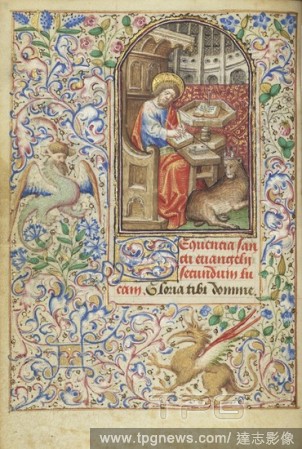 Sequencia san
cti euangelij
secundum lu
cam. Gloria tibi domine.
TPG
www.tpgnews.com / 達志影像